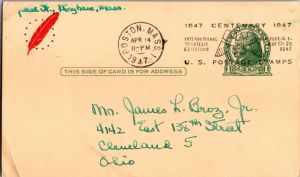 Hingham, Mass.
1847 CENTENARY 1947
BOSTON, MASS.
APR 14
8-PM
1947
INTERNATIONAL
PHILATELIC
EXHIBITION
MAY 17-25
1947
U.S. POSTAGE STAMPS
THIS SIDE OF CARD IS FOR ADDRESS
Mr. James L. Broz, Jr.
4142 East 138th Street
Cleveland 5
Ohio